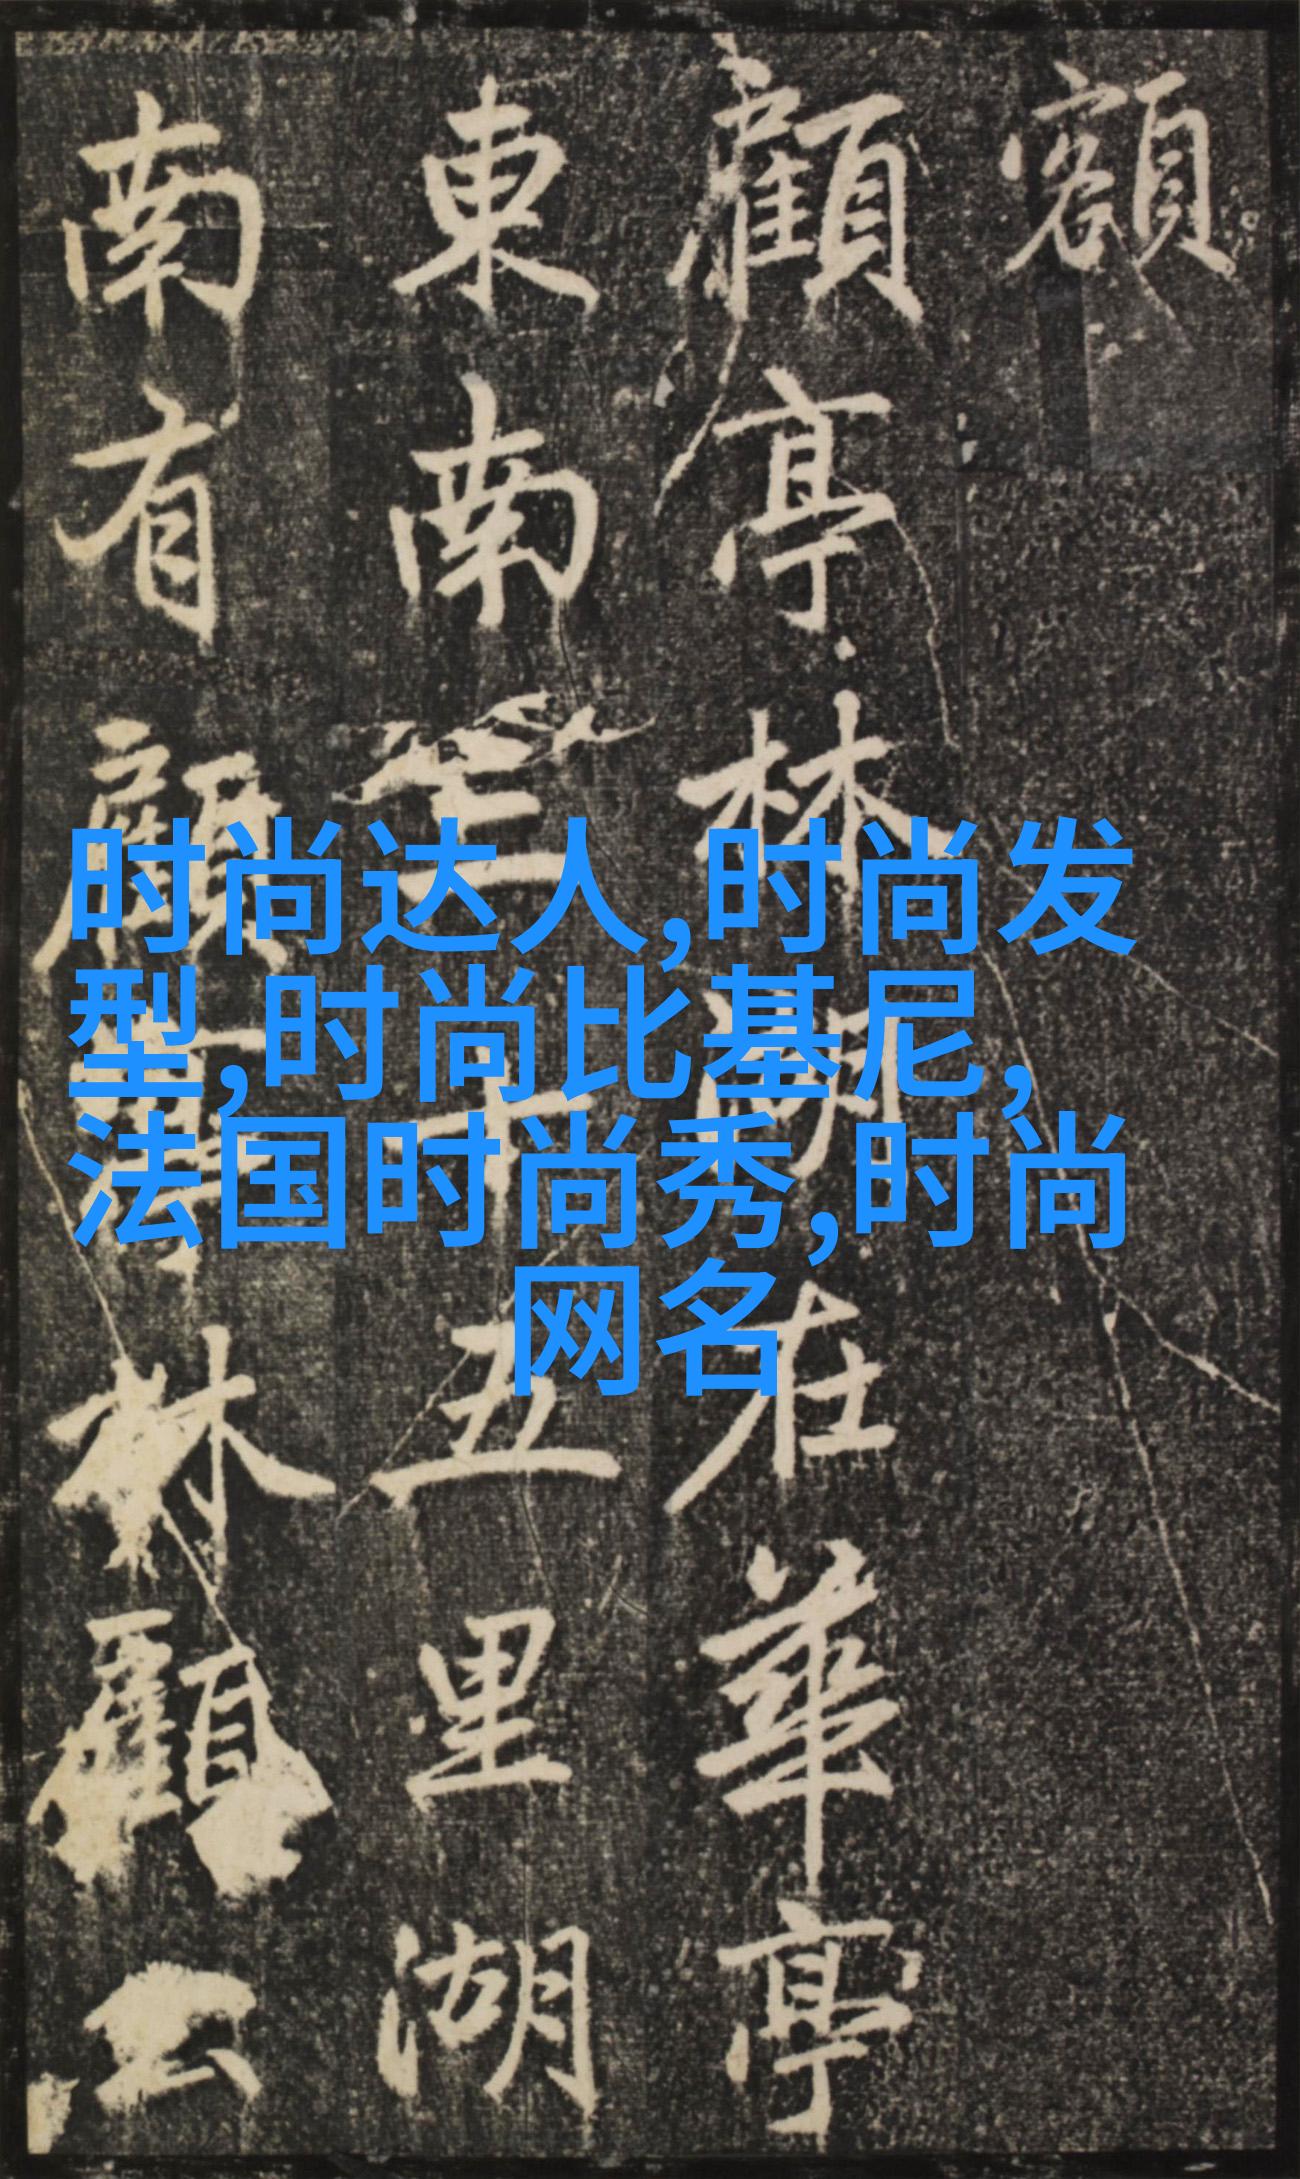 額
顧亭林湖在華亭
東南三十五里湖
南有顧亭林顧公
时尚达人,时尚发
型,时尚比基尼,
法国时尚秀,时尚
网名